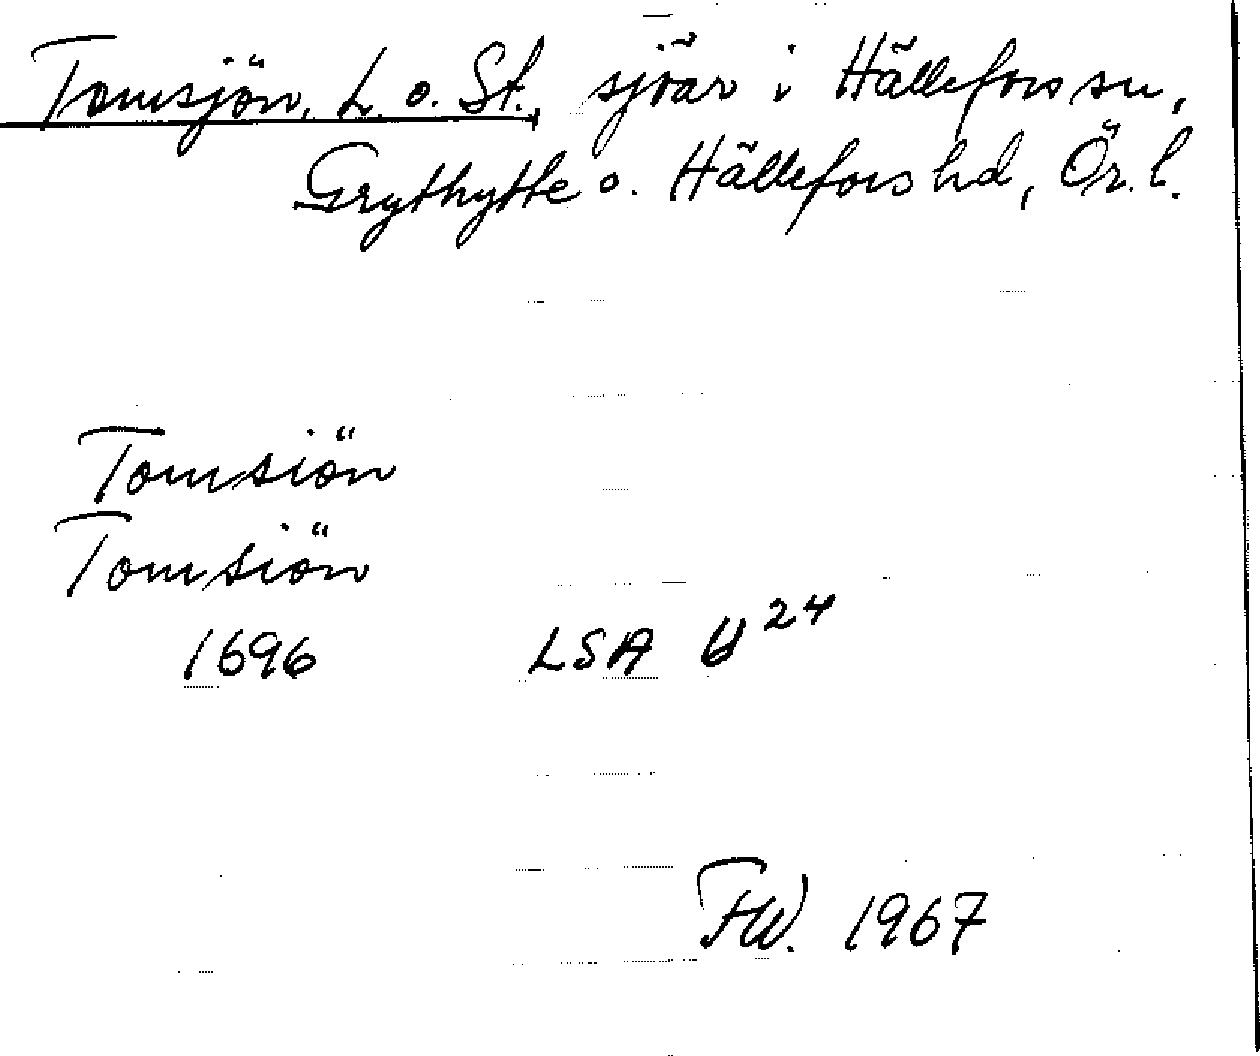 Tomsjön, L. o. St., sjöar i Hällefors sn,
Grythytte o. Hällefors hd, Ör. l.
Tomsiön
Tomsiön
1696 LSA U 24
FW. 1967